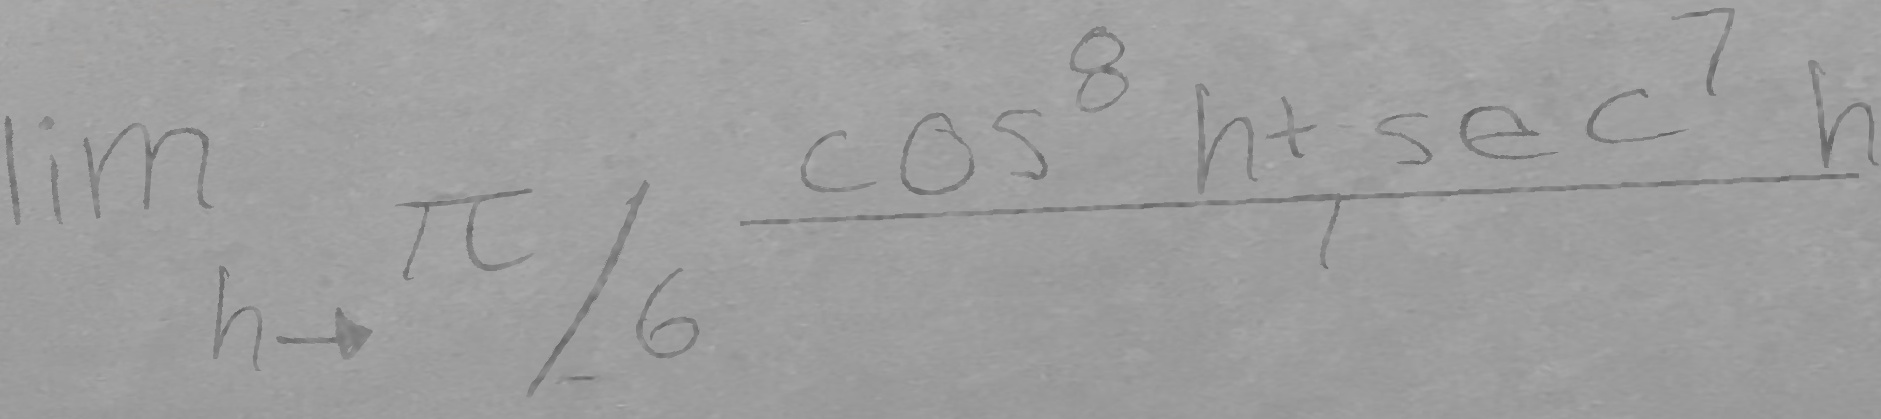 lim h→π/6 (cos^8 h + sec^7 h)/1